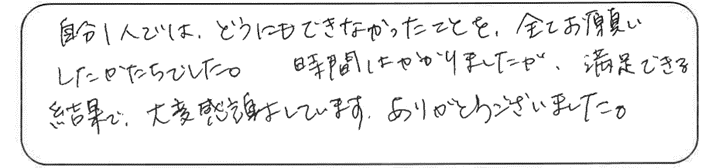 自分1人では、どうにもできなかったことを、全てお願い
したかたちでした。 時間はかかりましたが、満足できる
結果で、大変感謝しています。ありがとうございました。